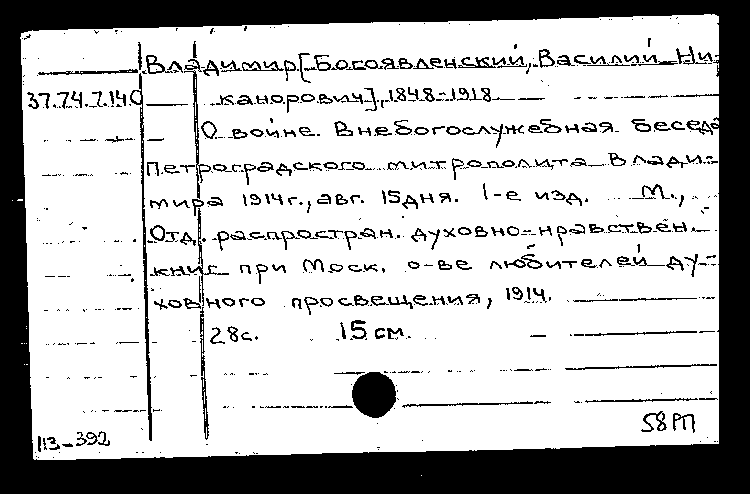 Владимир [Богоявленский, Василий Ни-
37.74.7.140 канорович], 1848-1918
О войне. Внебогослужебная беседа
Петроградского митрополита Влади-
мира 1914 г., авг. 15 дня. 1-е изд. М.,
Отд. распростран. духовно-нравствен.
книг при Моск. о-ве любителей ду-
ховного просвещения, 1914.
28 с. 15 см.
58РП
113-392